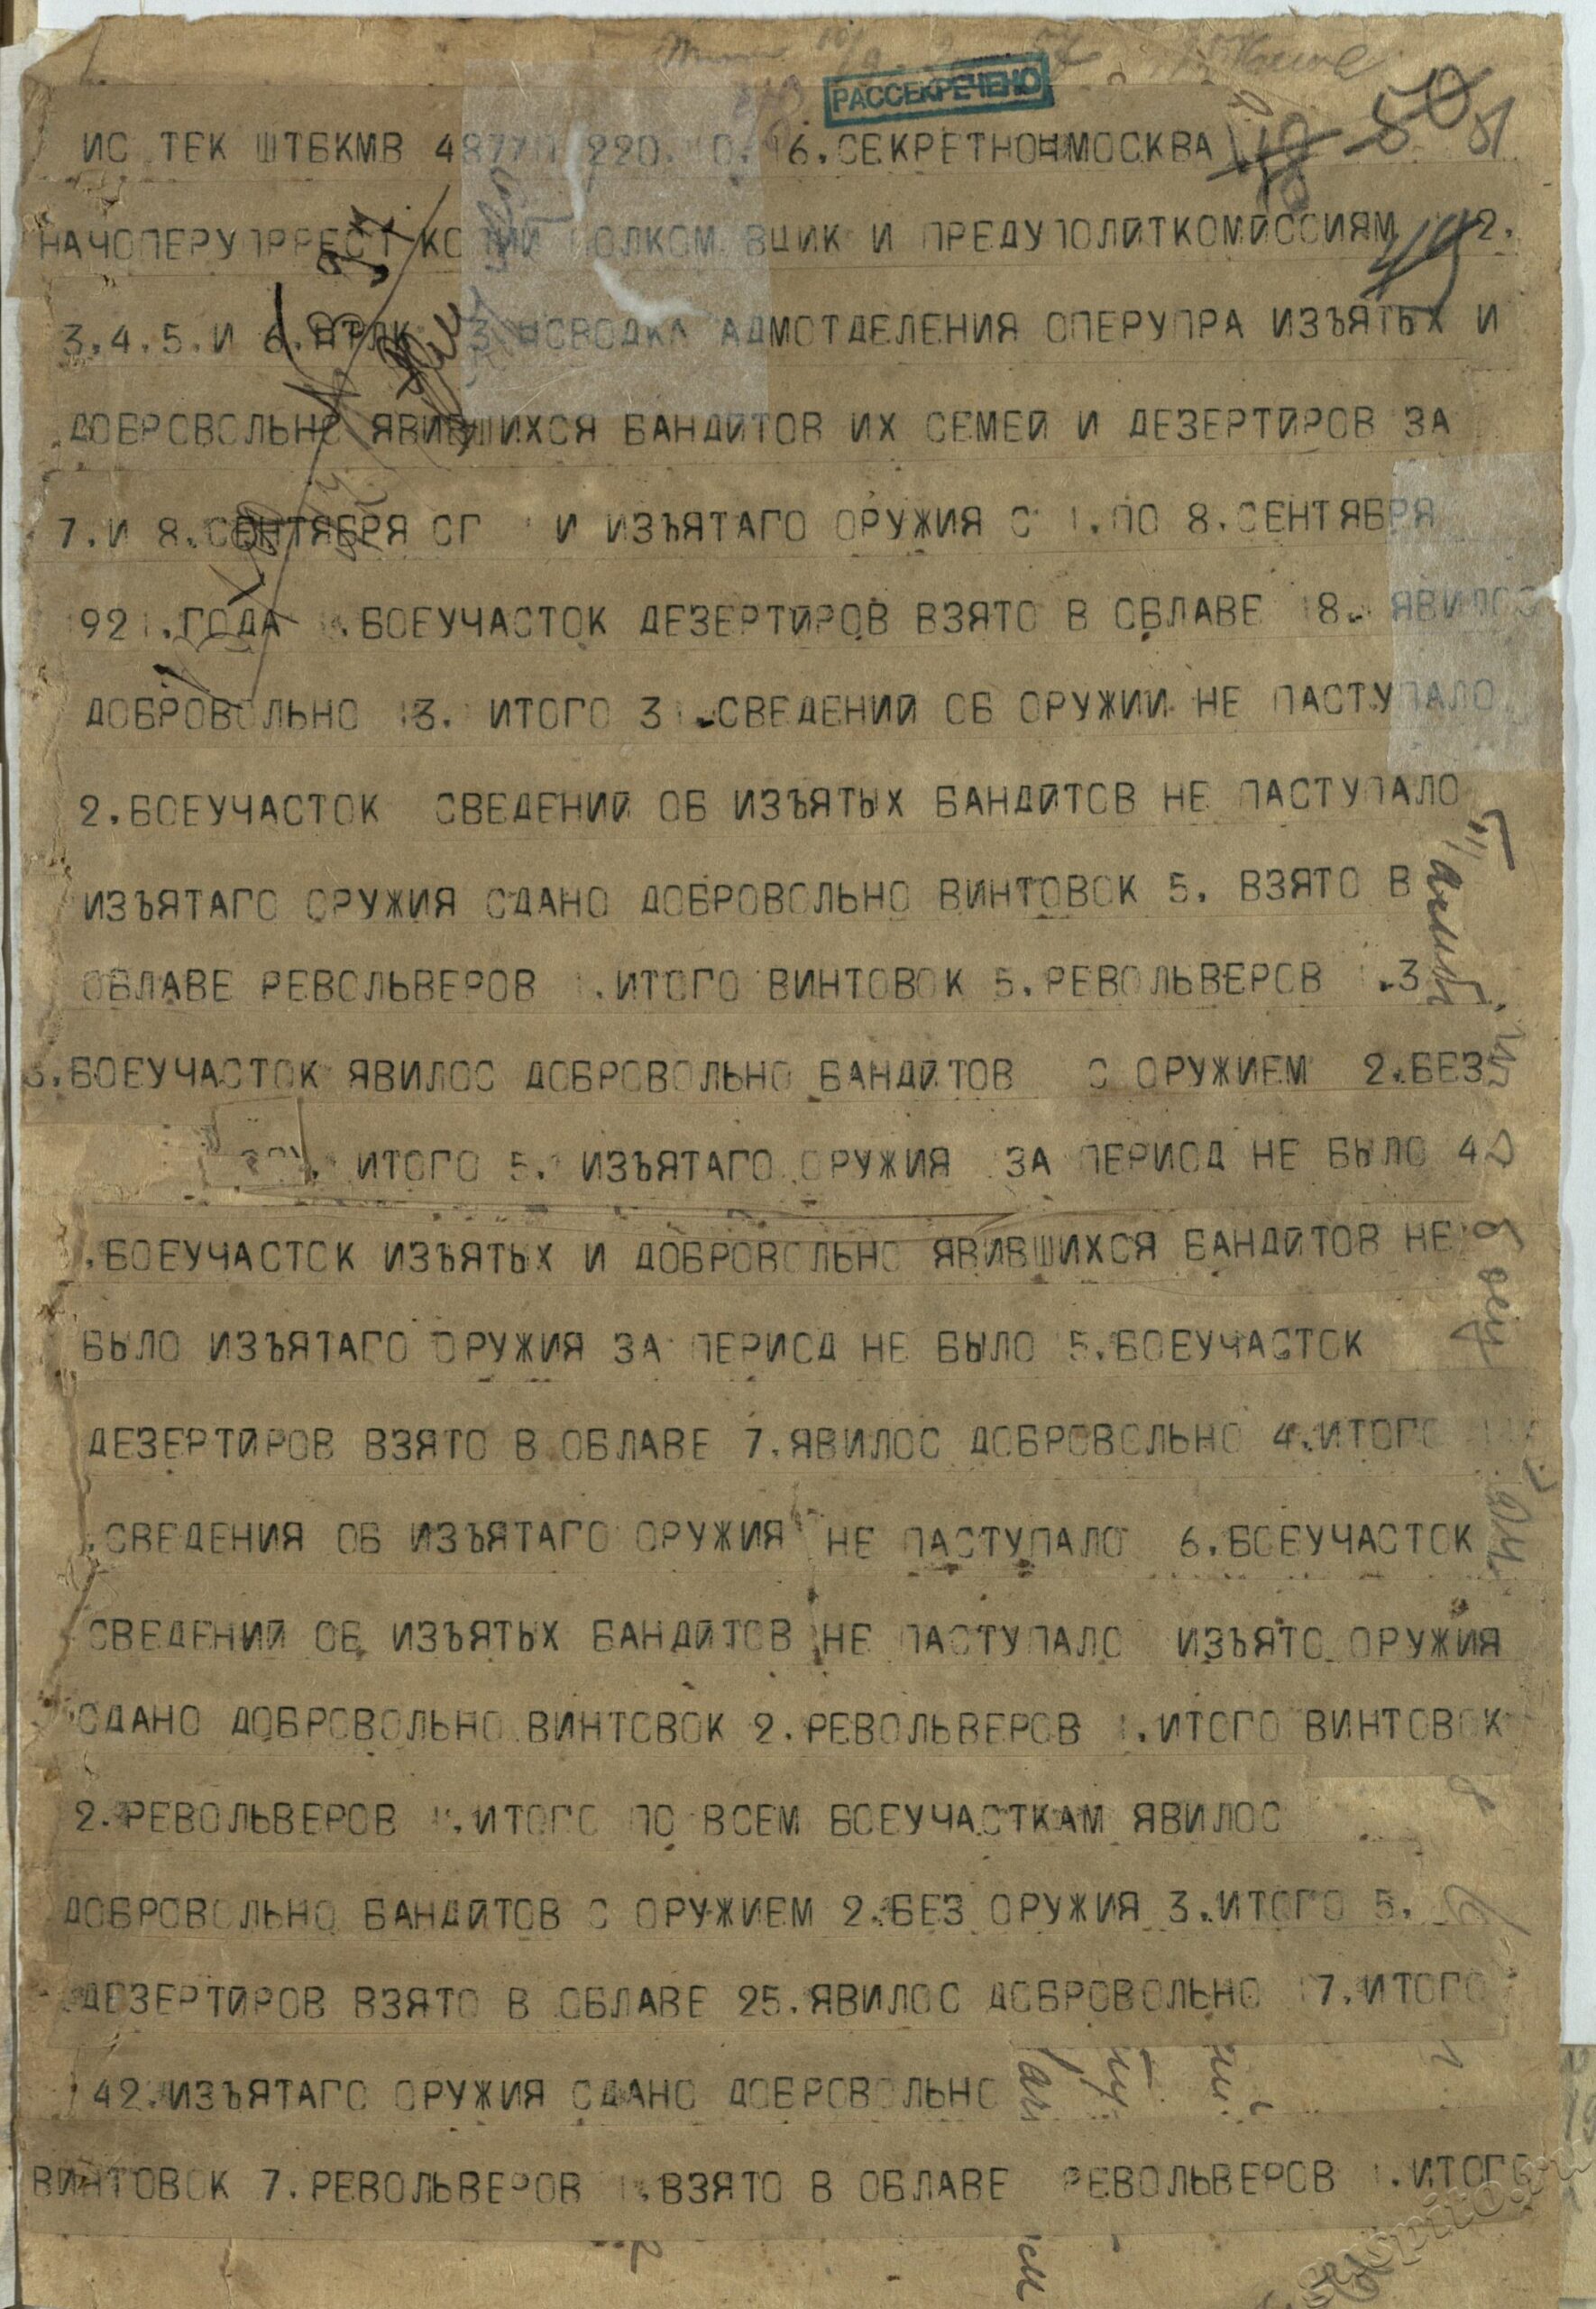 РАССЕКРЕЧЕНО
50
ИС ТЕК ШТБКМВ 220. 16.СЕКРЕТНО=МОСКВА
И ПРЕДУПОЛИТКОМИССИЯМ 2.
3.4.5.И 6. АДМОТДЕЛЕНИЯ ОПЕРУПРА ИЗЪЯТЫХ И
ДОБРОВОЛЬНО ЯВИВШИХСЯ БАНДИТОВ ИХ СЕМЕЙ И ДЕЗЕРТИРОВ ЗА
7.И 8.СЕНТЯБРЯ СГ И ИЗЪЯТАГО ОРУЖИЯ С 1.ПО 8.СЕНТЯБРЯ
1921.ГОДА 1.БОЕУЧАСТОК ДЕЗЕРТИРОВ ВЗЯТО В ОБЛАВЕ 18. ЯВИЛОС
ДОБРОВОЛЬНО 13. ИТОГО 31.СВЕДЕНИЙ ОБ ОРУЖИИ НЕ ПАСТУПАЛО
2.БОЕУЧАСТОК СВЕДЕНИЙ ОБ ИЗЪЯТЫХ БАНДИТОВ НЕ ПАСТУПАЛО
ИЗЪЯТАГО ОРУЖИЯ СДАНО ДОБРОВОЛЬНО ВИНТОВОК 5. ВЗЯТО В
ОБЛАВЕ РЕВОЛЬВЕРОВ 1.ИТОГО ВИНТОВОК 5.РЕВОЛЬВЕРОВ 1.3
3.БОЕУЧАСТОК ЯВИЛОС ДОБРОВОЛЬНО БАНДИТОВ С ОРУЖИЕМ 2.БЕЗ
ИТОГО 5. ИЗЪЯТАГО ОРУЖИЯ ЗА ПЕРИОД НЕ БЫЛО 4
.БОЕУЧАСТОК ИЗЪЯТЫХ И ДОБРОВОЛЬНО ЯВИВШИХСЯ БАНДИТОВ НЕ
БЫЛО ИЗЪЯТАГО ОРУЖИЯ ЗА ПЕРИОД НЕ БЫЛО 5.БОЕУЧАСТОК
ДЕЗЕРТИРОВ ВЗЯТО В ОБЛАВЕ 7.ЯВИЛОС ДОБРОВОЛЬНО 4.ИТОГО
.СВЕДЕНИЯ ОБ ИЗЪЯТАГО ОРУЖИЯ НЕ ПАСТУПАЛО 6.БОЕУЧАСТОК
СВЕДЕНИЙ ОБ ИЗЪЯТЫХ БАНДИТОВ НЕ ПАСТУПАЛО ИЗЪЯТО ОРУЖИЯ
СДАНО ДОБРОВОЛЬНО ВИНТОВОК 2.РЕВОЛЬВЕРОВ 1.ИТОГО ВИНТОВОК
2.РЕВОЛЬВЕРОВ 1.ИТОГО ПО ВСЕМ БОЕУЧАСТКАМ ЯВИЛОС
ДОБРОВОЛЬНО БАНДИТОВ С ОРУЖИЕМ 2.БЕЗ ОРУЖИЯ 3.ИТОГО 5.
ДЕЗЕРТИРОВ ВЗЯТО В ОБЛАВЕ 25.ЯВИЛОС ДОБРОВОЛЬНО 17.ИТОГО
42.ИЗЪЯТАГО ОРУЖИЯ СДАНО ДОБРОВОЛЬНО
ВИНТОВОК 7.РЕВОЛЬВЕРОВ 1.ВЗЯТО В ОБЛАВЕ РЕВОЛЬВЕРОВ 1.ИТОГО